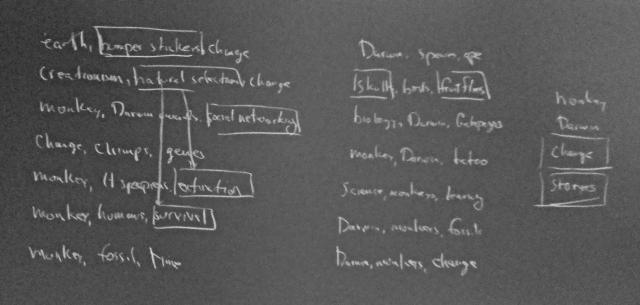 earth, bumper stickers, change
creationism, natural selection, change
monkey, Darwin awards, social networking
change, chimps, genes
monkey, H sapiens, extinction
monkey, humans, survival
monkey, fossil, time
Darwin, spawn, ape
skull, birds, fruit flies
biology, Darwin, Galapagos
monkey, Darwin, tattoo
Science, monkeys,
Darwin, monkeys, fossils
Darwin, monkeys, change
monkey
Darwin
Change
Stories